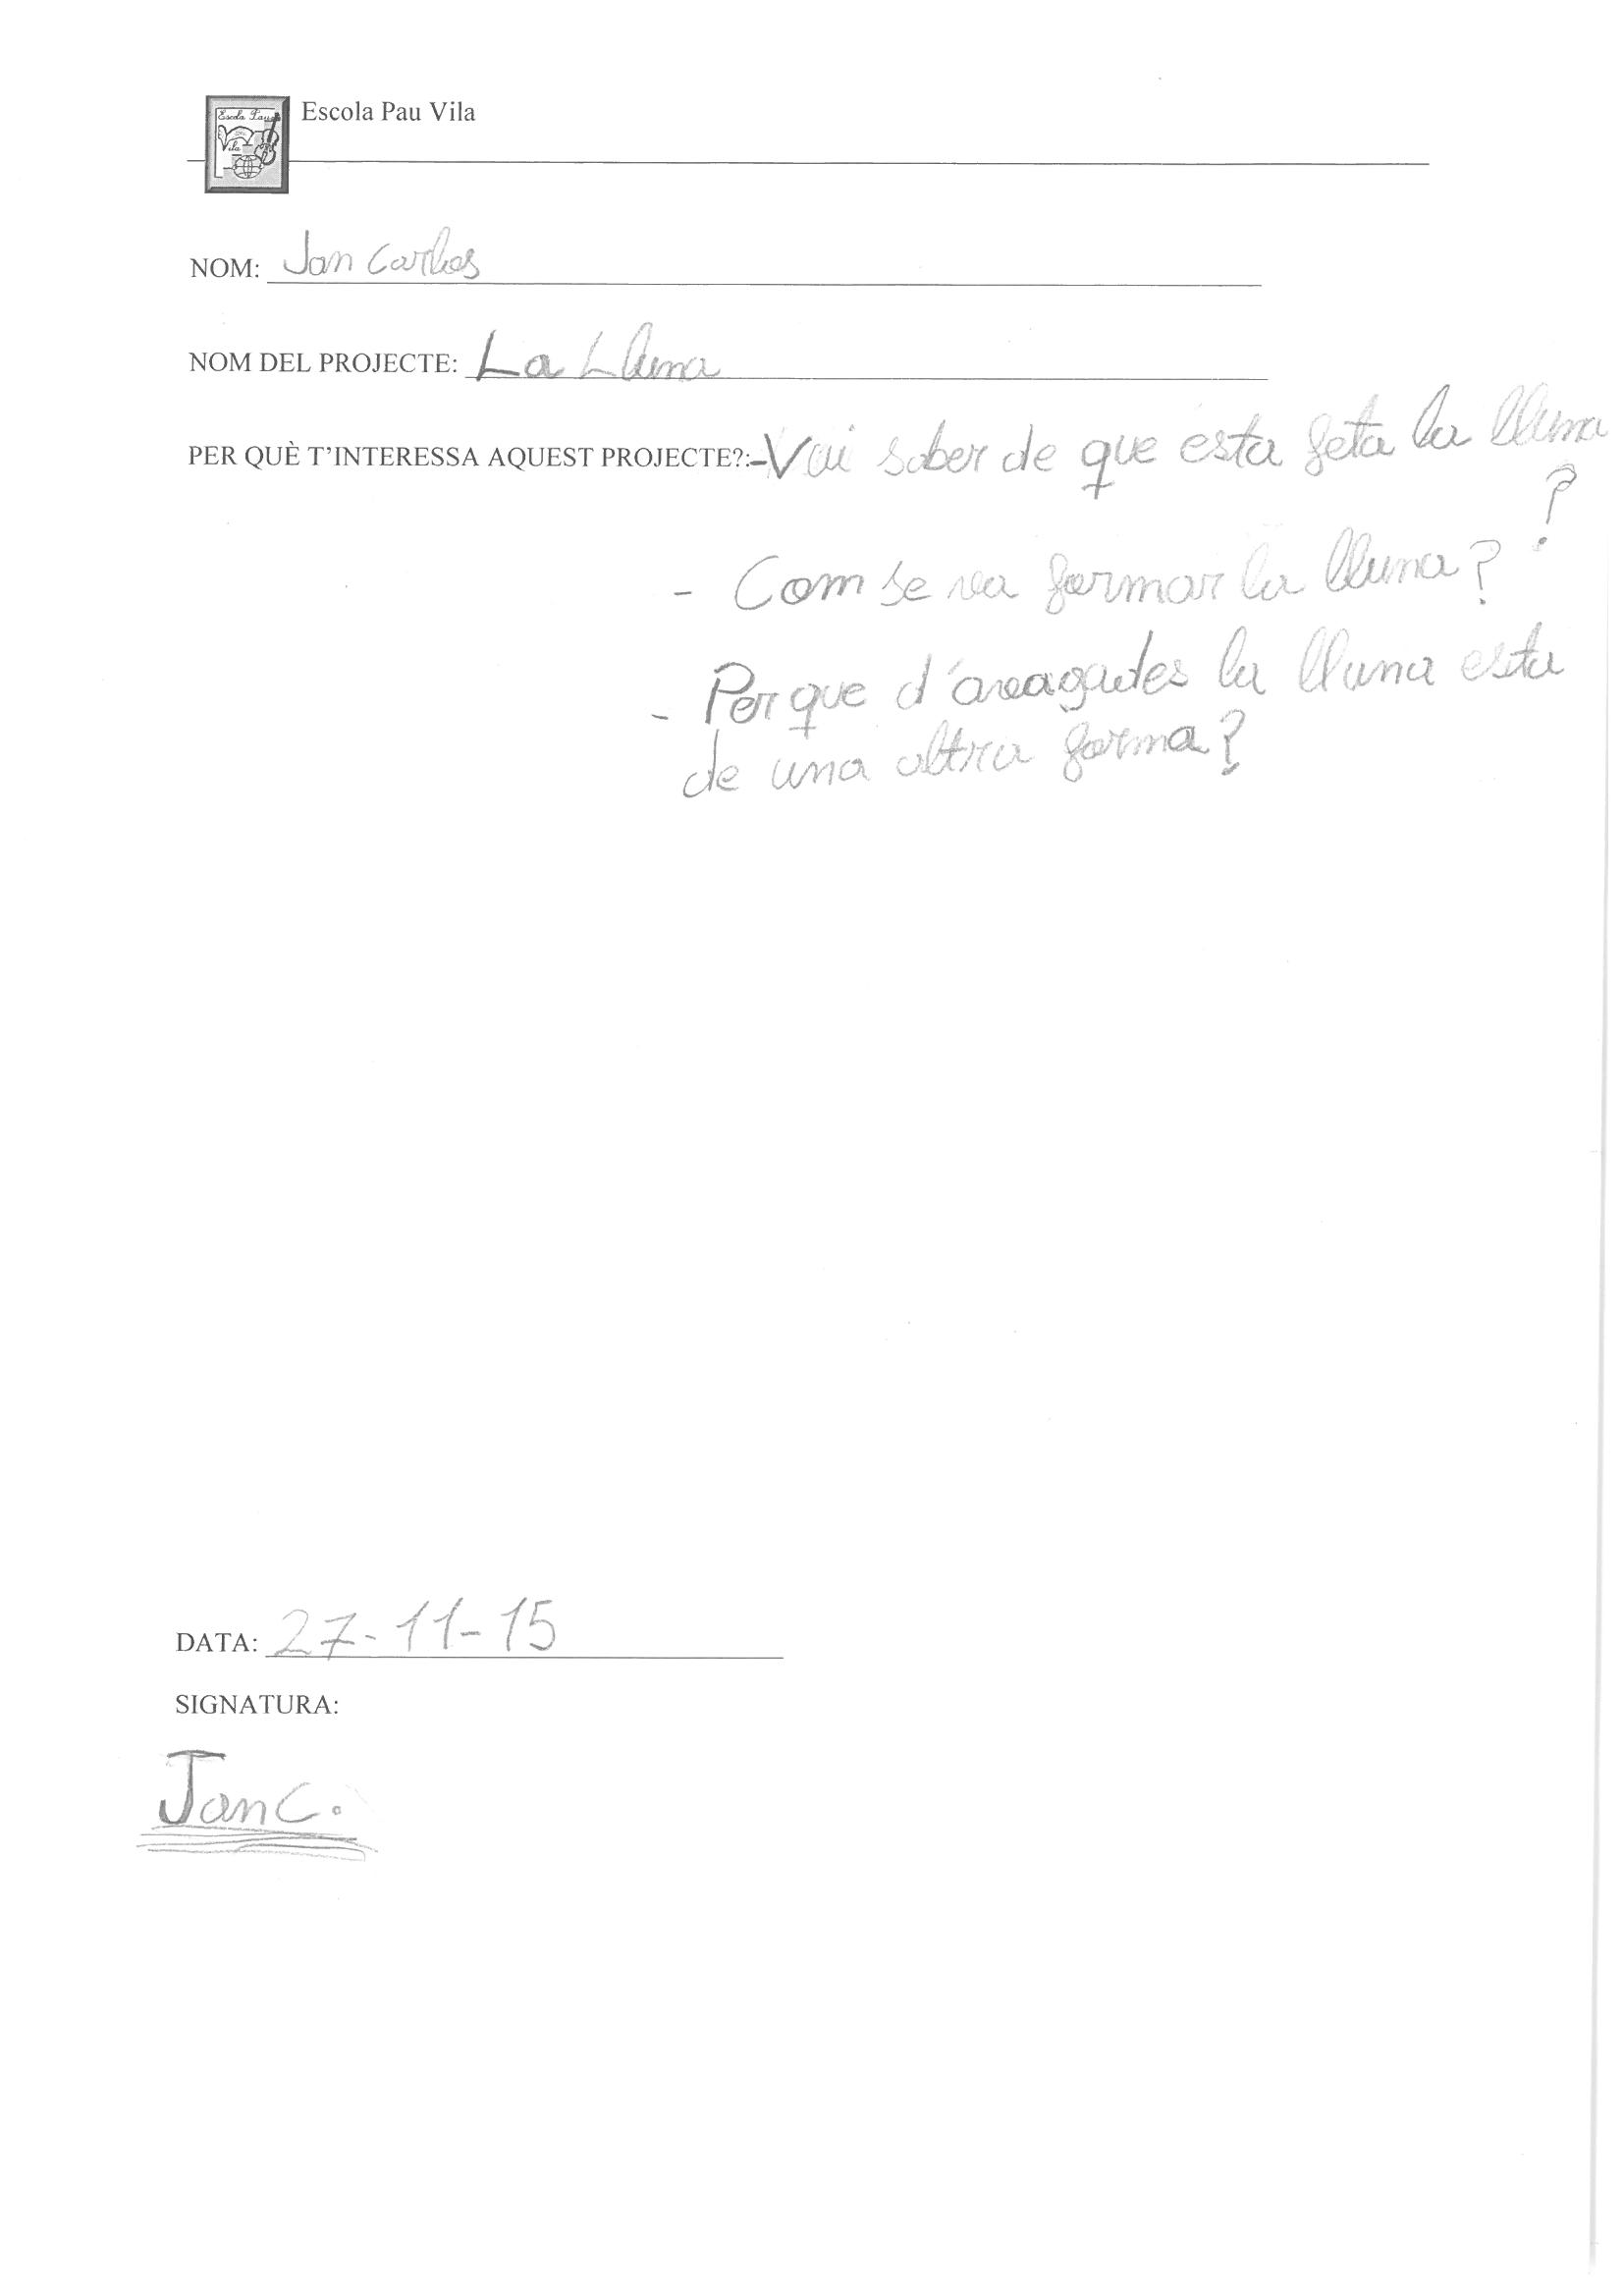 Escola Pau
Vila
Escola Pau Vila
NOM: Jan Carlos
NOM DEL PROJECTE: La Lluna
PER QUÈ T'INTERESSA AQUEST PROJECTE?:-Vui saber de que esta feta la lluna
?
- Com se va formar la lluna?
- Per que d'aveagades la lluna esta
de una altra forma?
DATA: 27-11-15
SIGNATURA:
Jan C.